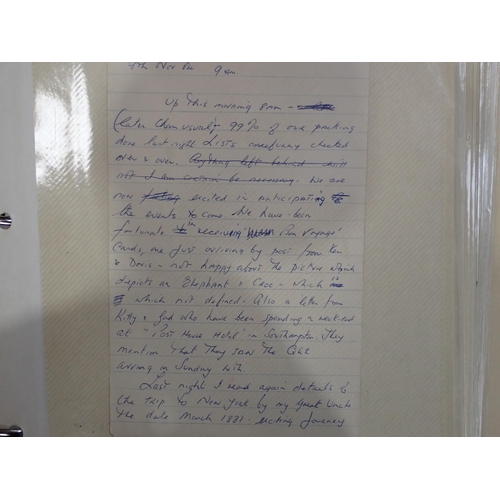 9am.
Up this morning 8am -
(later than usual); 99% of our packing
done last night. Lists carefully checked
over & over. Anything left behind
not I am certain be necessary. We are
now excited in anticipating
the events to come. We have been
fortunate in receiving 'Bon Voyage'
Cards, one just arriving by post from Ken
& Doris - not happy about the picture which
depicts an Elephant & Croc - which is
which not defined - Also a letter from
Kitty & who have been spending a week-end
at "Post House Hotel" in Southampton. They
mention that they saw the QE2
arriving on Sunday with.
Last night I read again details of
the trip to New York by my great Uncle
the date March 1881 - exciting Journey